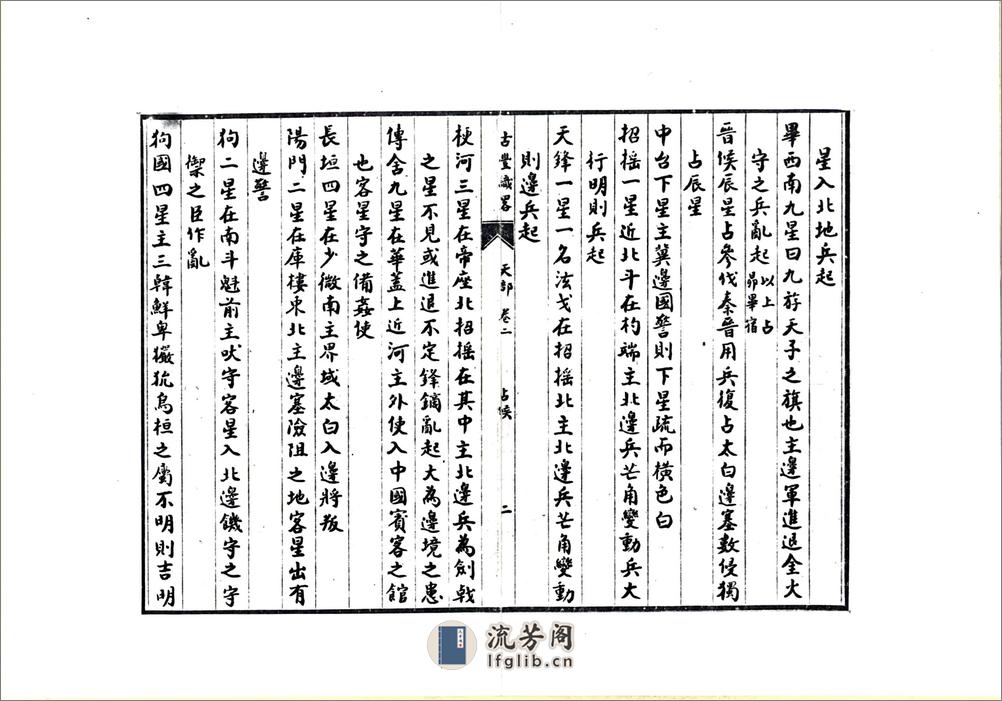 星入北地兵起
畢西南九星曰九斿天子之旗也主邊軍進退金火
守之兵亂起以上占昴畢宿
晉候辰星占參伐秦晉用兵復占太白邊塞數侵獨
占辰星
中台下星主冀邊國警則下星疏而橫色白
招搖一星近北斗在杓端主北邊兵芒角變動兵大
行明則兵起
天鋒一星一名泫戈在招搖北主北邊兵芒角變動
則邊兵起
古豐識畧 天部 卷二 占候 二
梗河三星在帝座北招搖在其中主北邊兵為劍戟
之星不見或進退不定鋒鏑亂起大為邊境之患
傳舍九星在華蓋上近河主外使入中國賓客之館
也客星守之備姦使
長垣四星在少微南主界域太白入邊將叛
陽門二星在庫樓東北主邊塞險阻之地客星出有
邊警
狗二星在南斗魁前主吠守客星入北邊饑守之守
禦之臣作亂
狗國四星主三韓鮮卑玁狁烏桓之屬不明則吉明
流芳阁
lfglib.cn